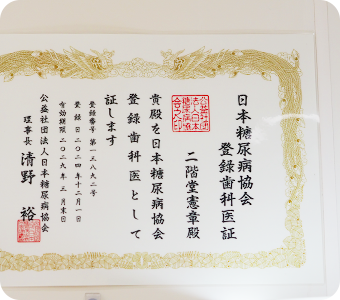 日本糖尿病協会
登録歯科医証
二階堂憲章殿
貴殿を日本糖尿病協会
登録歯科医として
証します
登録番号 第一三八九二号
登録日 二〇二四年 十二月 一日
有効期限 二〇二九年 三月末日
公益社団法人日本糖尿病協会
理事長 清野 裕